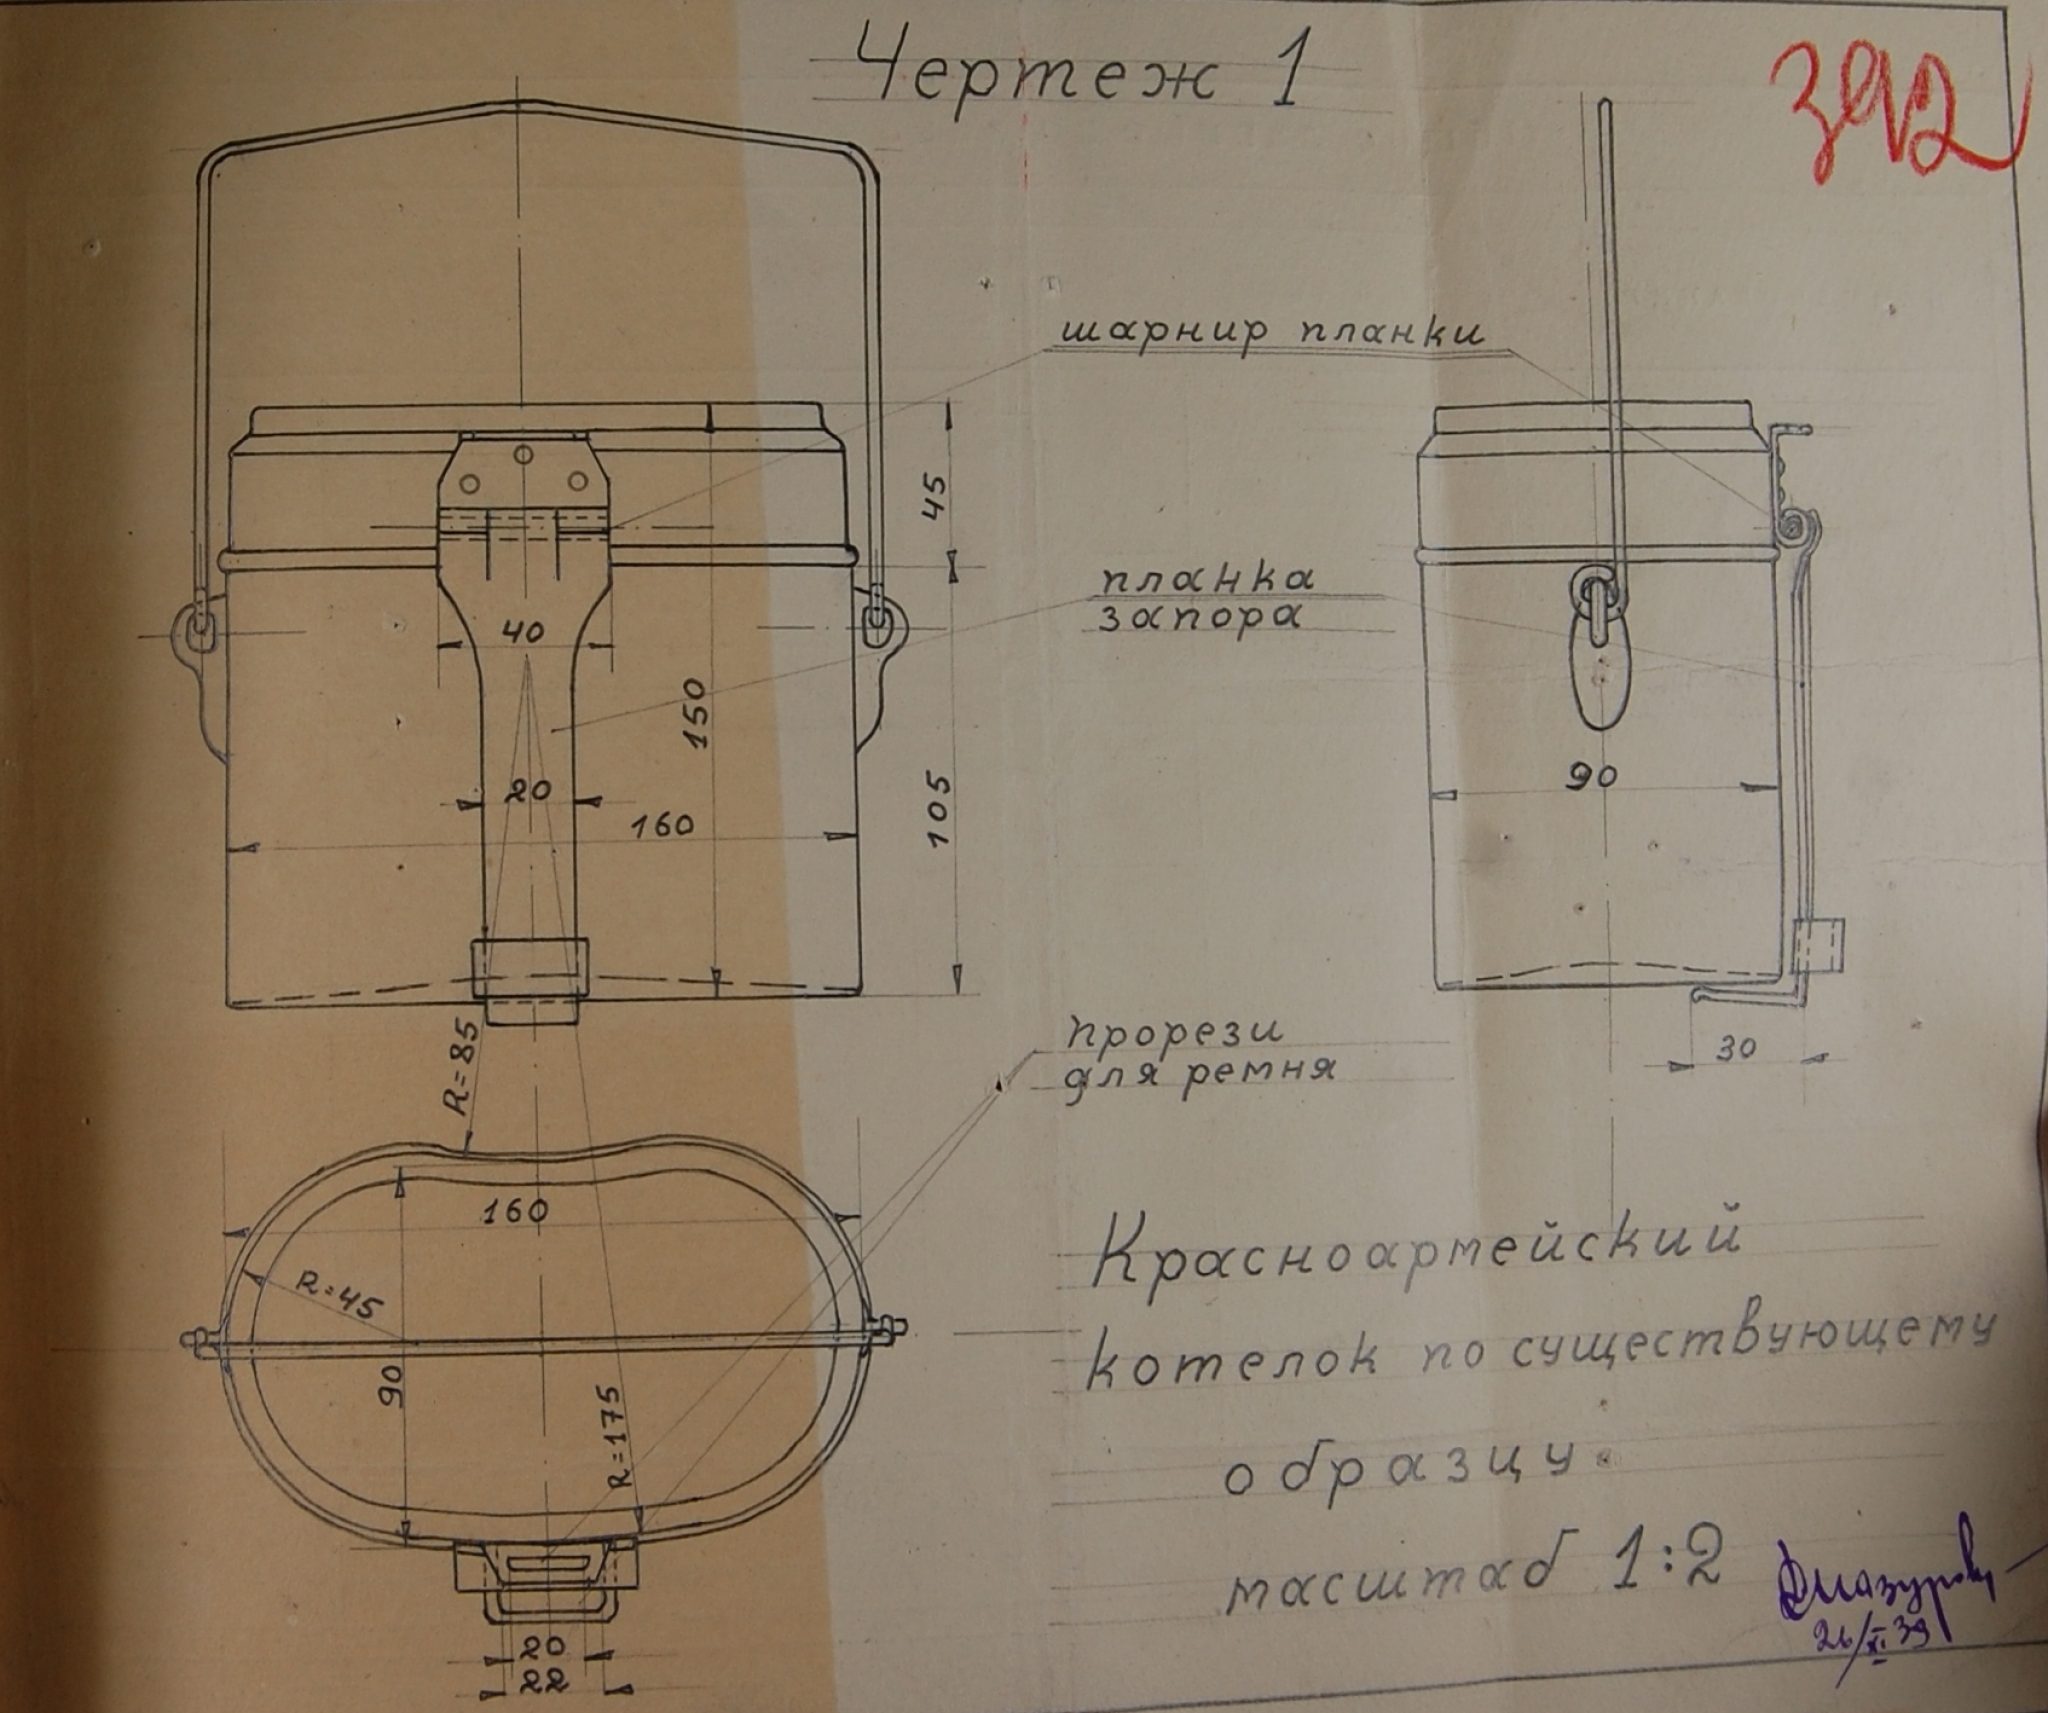 Чертеж 1
392
шарнир планки
45
планка
запора
40
150
20
160
105
90
прорези
для ремня
R=85
30
160
R=45
90
R=175
Красноармейский
котелок по существующему
образцу.
масштаб 1:2
26/XI 39
20
22